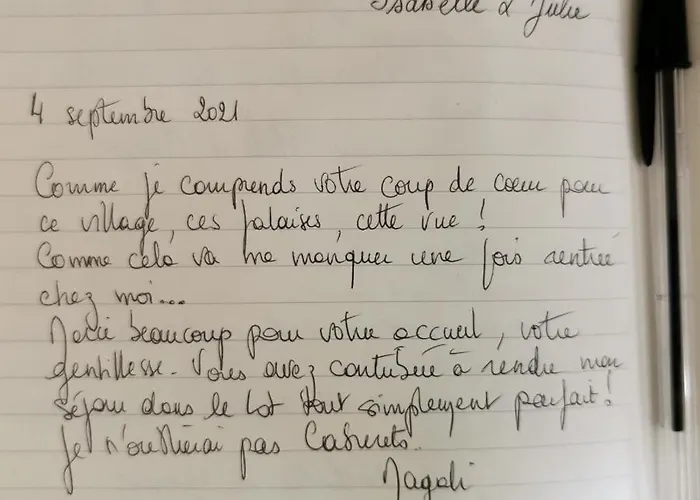 Isabelle & Julie
4 septembre 2021
Comme je comprends votre coup de coeur pour
ce village, ces falaises, cette vue !
Comme cela va me manquer une fois rentrée
chez moi...
Merci beaucoup pour votre accueil, votre
gentillesse. Vous avez contribué à rendre mon
séjour dans le Lot tout simplement parfait !
Je n'oublierai pas Cabrerets.
Magali